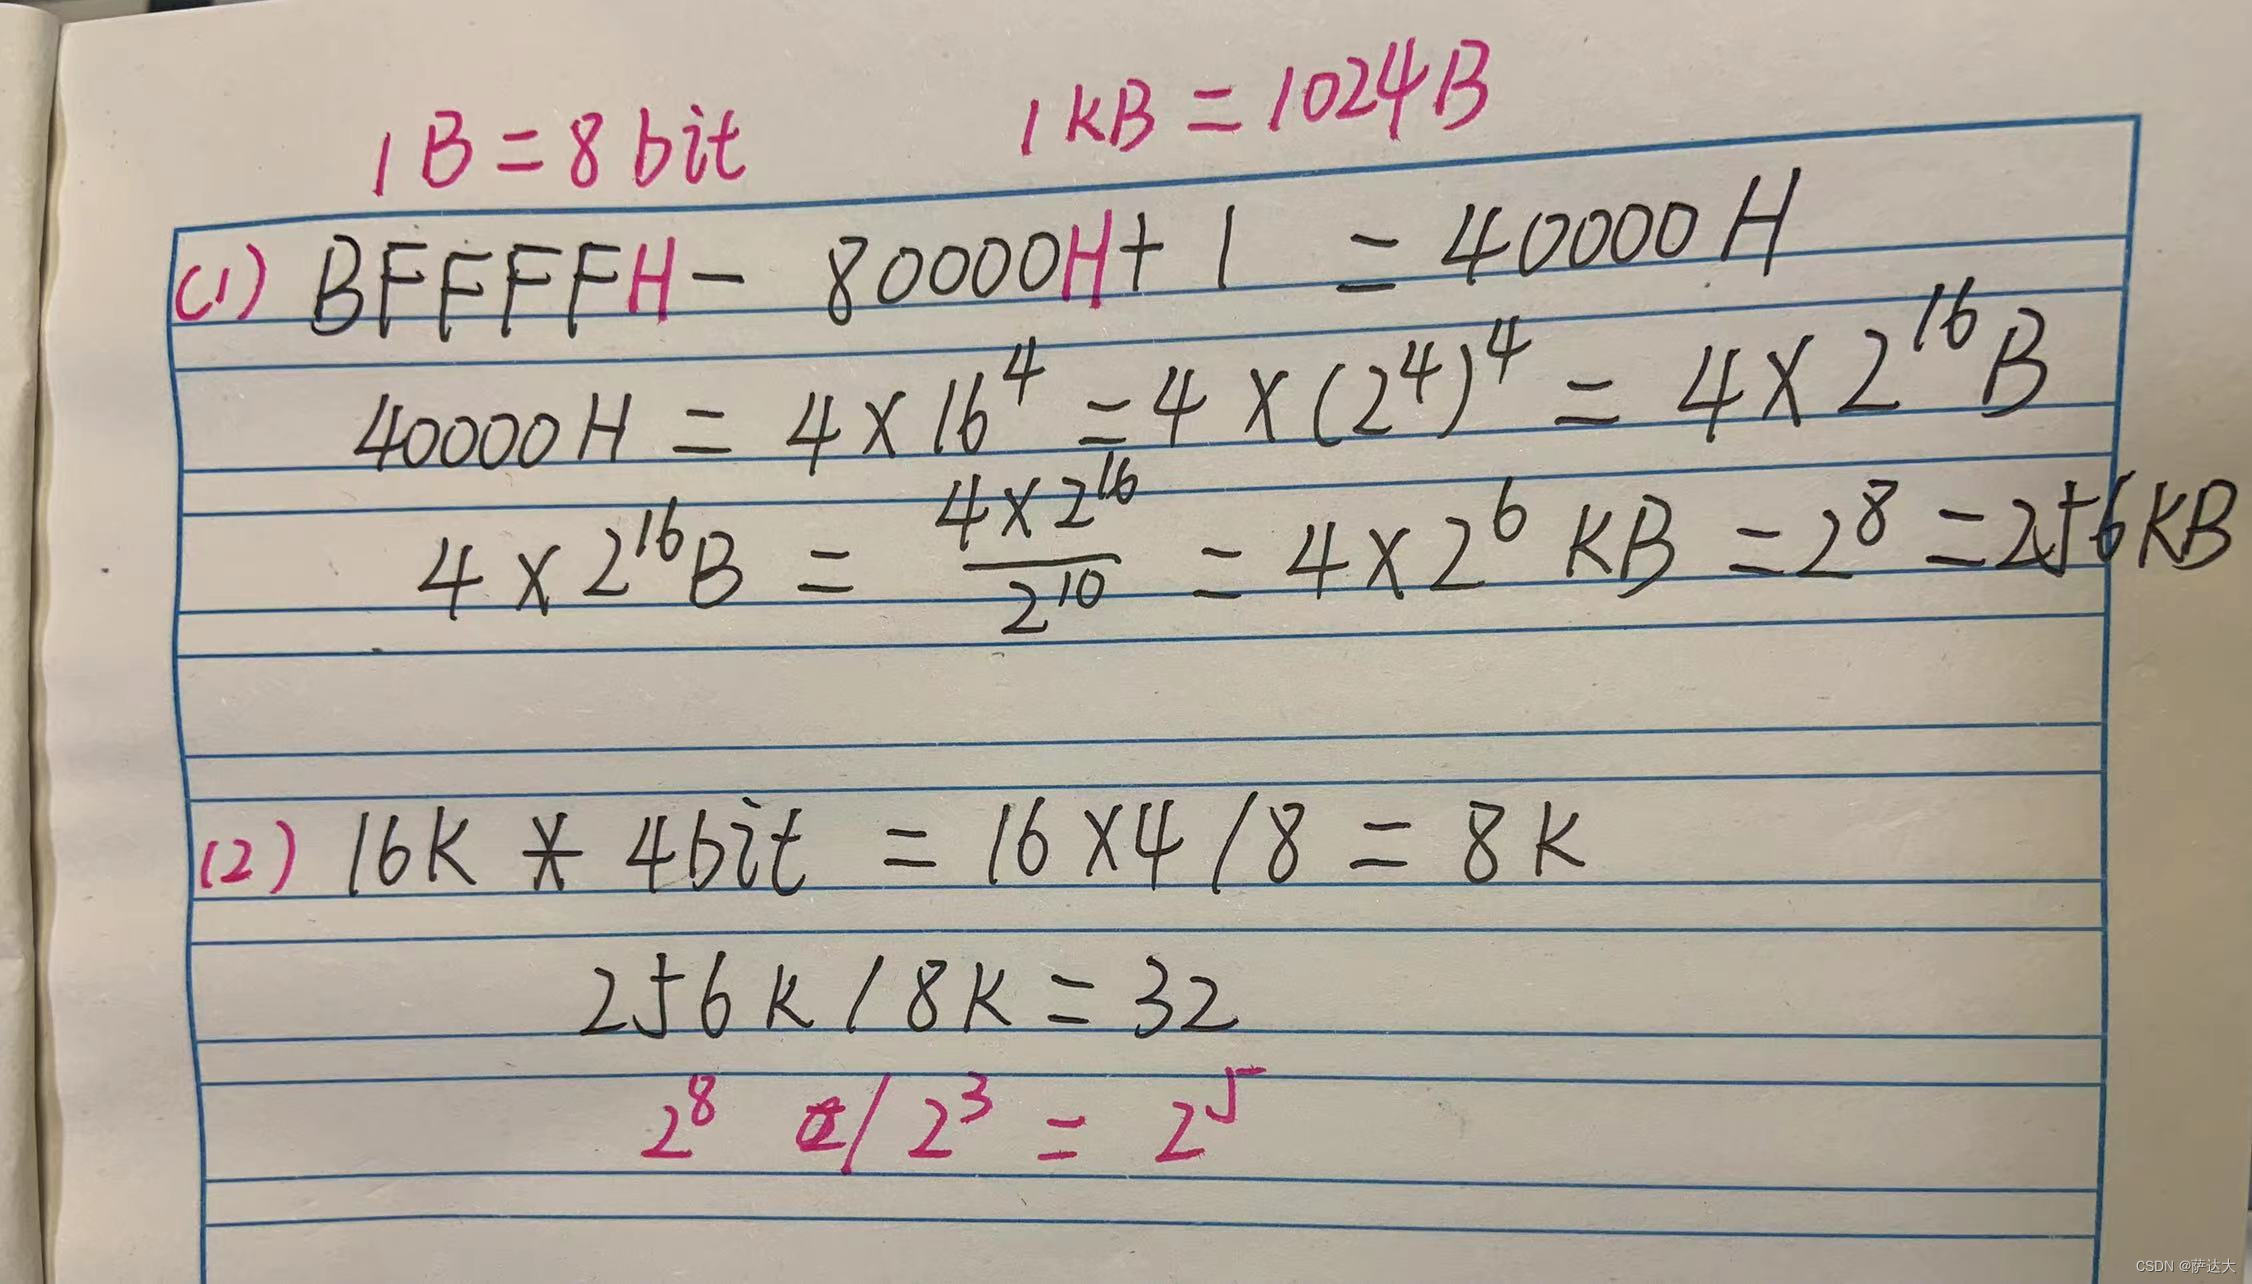 1B=8bit 1KB=1024B
(1) BFFFFH- 80000H+1 = 40000H
40000H = 4×16⁴ = 4×(2⁴)⁴ = 4×2¹⁶B
4×2¹⁶B = 4×2¹⁶/2¹⁰ = 4×2⁶ KB = 2⁸ = 256KB
(2) 16K * 4bit = 16×4/8 = 8K
256K/8K=32
2⁸ / 2³ = 2⁵
CSDN @萨达大